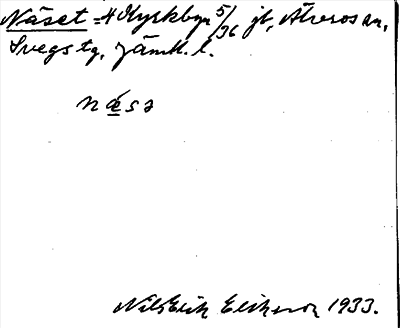 Näset 4 Klyskbyn 5/36 jb, Älvros sn,
Svegs tg, Jämtl. l.
næsə
Nils Erik Eliheson 1933.